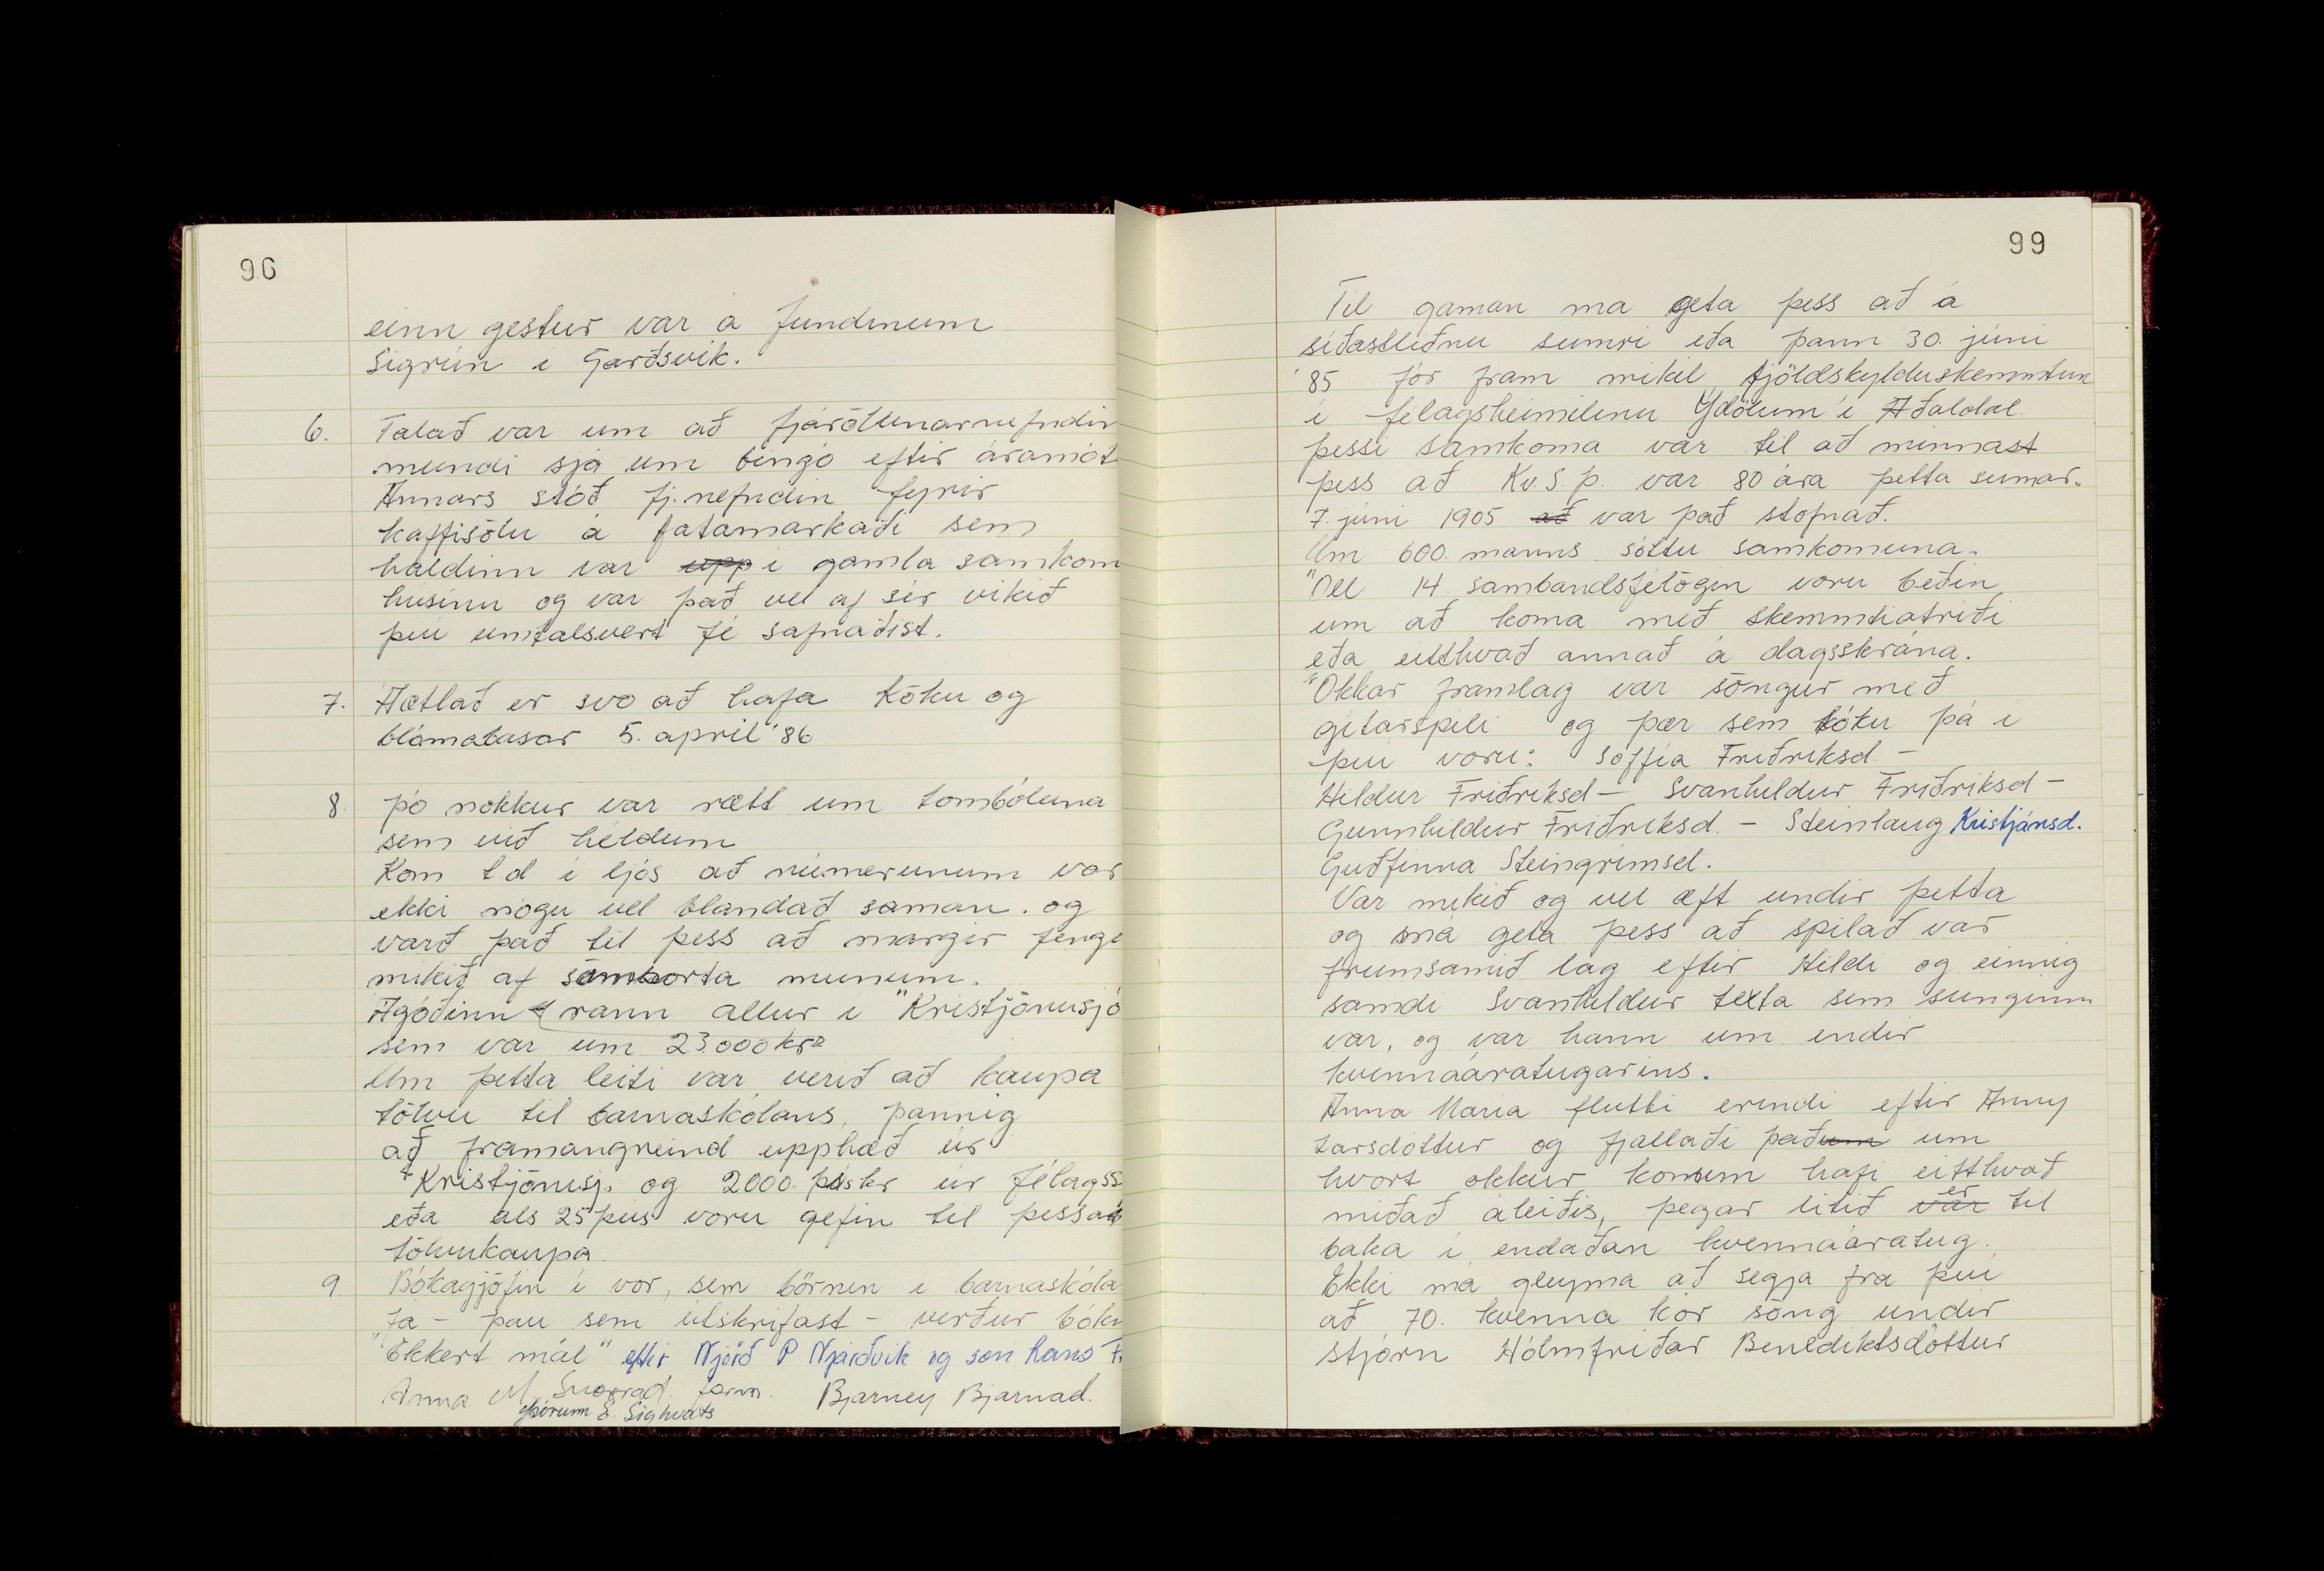 96
einn gestur var á fundinum
Sigrún í Garðsvík.
6. Talað var um að fjáröflunarnefndin
mundi sjá um bingó eftir áramót
Annars stóð fj.nefndin fyrir
kaffisölu á fatamarkaði sem
haldinn var upp í gamla samkom
húsinu og var það vel af sér vikið
því umtalsvert fé safnaðist.
7. Ætlað er svo að hafa köku og
blómabasar 5. apríl '86
8. Þó nokkur var rætt um tombóluna
sem við héldum
Kom t d í ljós að númerunum var
ekki nógu vel blandað saman. og
varð það til þess að margir fenge
mikið af samskorta munum.
Ágóðinn rann allur í "Kristjönusjó
sem var um 23.000 kr
Um þetta leiti var verið að kaupa
tölvu til barnaskólans, þannig
að framangreind upphæð úr
"Kristjönusj. og 2000. kr úr félagss
eða als 25 þús voru gefin til þessa
tölvukaupa.
9. Bókagjöfin í vor, sem börnin í barnaskóla
fá - þau sem útskrifast - verður bókin
"Ekkert mál" eftir Njörð P Njarðvík og son hans Fr
Anna M. Snorrad. form. Bjarney Bjarnad.
Þórunn E. Sighvats
99
Til gaman má geta þess að á
síðastliðnu sumri eða þann 30. júní
'85 fór fram mikil fjöldskylduskemmtun
í félagsheimilinu Ýdölum í Aðaldal.
þessi samkoma var til að minnast
þess að Kv.S.Þ. var 80 ára þetta sumar.
7. júní 1905 að var það stofnað.
Um 600. manns sóttu samkomuna.
"Öll 14 sambandsfélögin voru beðin
um að koma með skemmtiatriði
eða eitthvað annað á dagsskrána.
"Okkar framlag var söngur með
gítarspili og þær sem tóku þá í
því voru: Soffía Friðriksd. -
Hildur Friðriksd - Svanhildur Friðriksd -
Gunnhildur Friðriksd. - Steinlaug Kristjánsd.
Guðfinna Steingrímsd.
Var mikið og vel æft undir þetta
og má geta þess að spilað var
frumsamið lag eftir Hildi og einnig
samdi Svanhildur texta sem sunginn
var, og var hann um endir
kvennaáratugarins.
Anna María flutti erindi eftir Önny
Larsdóttur og fjallaði það um um
hvort okkur konum hafi eitthvað
miðað áleiðis, þegar litið var er til
baka í endaðan kvennaáratug.
Ekki má gleyma að segja frá því
að 70. kvenna kór söng undir
stjórn Hólmfríðar Benediktsdóttur